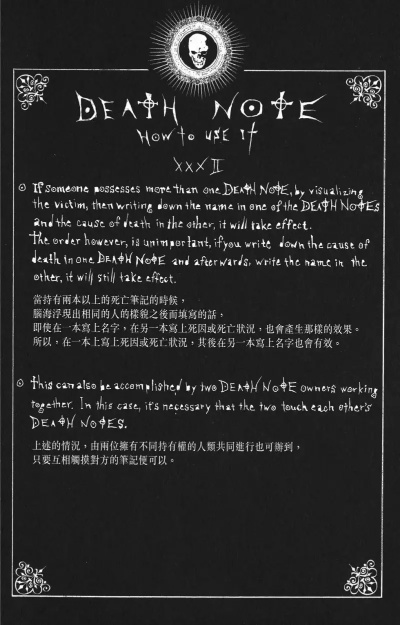 DEATH NOTE
HOW TO USE IT
XXXII
If someone possesses more than one DEATH NOTE, by visualizing
the victim, then writing down the name in one of the DEATH NOTES
and the cause of death in the other, it will take effect.
The order however, is unimportant, if you write down the cause of
death in one DEATH NOTE and afterwards, write the name in the
other, it will still take effect.
當持有兩本以上的死亡筆記的時候，
腦海浮現出相同的人的樣貌之後而填寫的話，
即使在一本寫上名字，在另一本寫上死因或死亡狀況，也會產生那樣的效果。
所以，在一本上寫上死因或死亡狀況，其後在另一本寫上名字也會有效。
This can also be accomplished by two DEATH NOTE owners working
together. In this case, it's necessary that the two touch each other's
DEATH NOTES.
上述的情況，由兩位擁有不同持有權的人類共同進行也可辦到，
只要互相觸摸對方的筆記便可以。